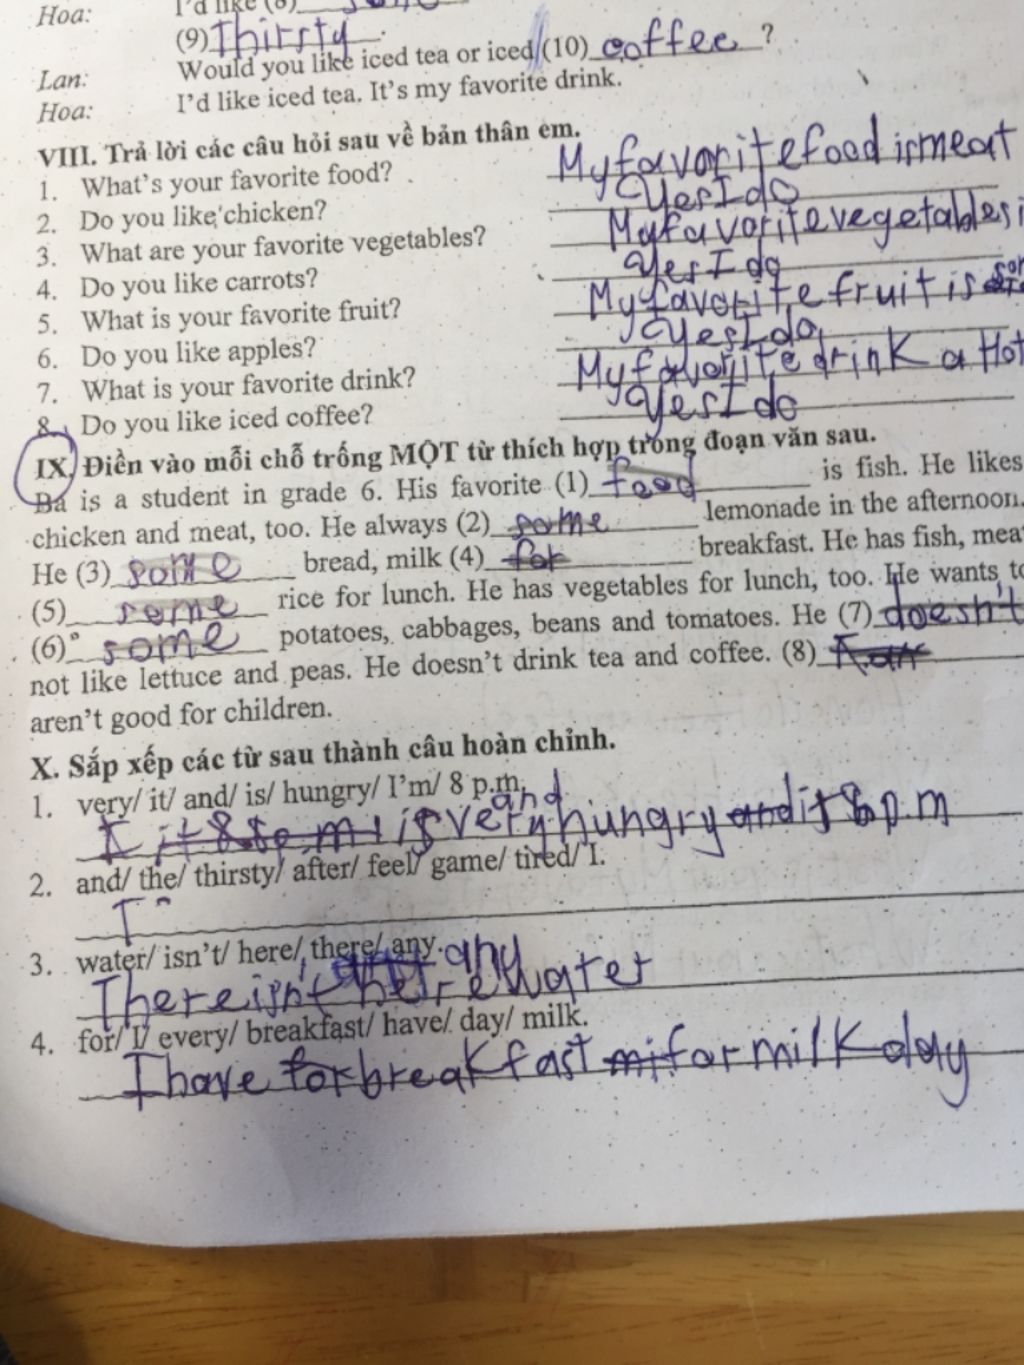 Hoa: I'd like (8) some
(9) Thirsty.
Lan: Would you like iced tea or iced (10) coffee ?
Hoa: I'd like iced tea. It's my favorite drink.
VIII. Trả lời các câu hỏi sau về bản thân em.
1. What's your favorite food? My favorite food is meat
2. Do you like chicken? Yes I do
3. What are your favorite vegetables? My favorite vegetables i
4. Do you like carrots? Yes I do
5. What is your favorite fruit? My favorite fruit is
6. Do you like apples? Yes I do
7. What is your favorite drink? My favorite drink a Hot
8. Do you like iced coffee? Yes I do
IX. Điền vào mỗi chỗ trống MỘT từ thích hợp trong đoạn văn sau.
Ba is a student in grade 6. His favorite (1) food is fish. He likes
chicken and meat, too. He always (2) some lemonade in the afternoon.
He (3) some bread, milk (4) for breakfast. He has fish, mea
(5) some rice for lunch. He has vegetables for lunch, too. He wants to
(6) some potatoes, cabbages, beans and tomatoes. He (7) doesn't
not like lettuce and peas. He doesn't drink tea and coffee. (8)
aren't good for children.
X. Sắp xếp các từ sau thành câu hoàn chỉnh.
1. very/ it/ and/ is/ hungry/ I'm/ 8 p.m.
I it 8 p.m is very hungry and it 8 p.m
2. and/ the/ thirsty/ after/ feel/ game/ tired/ I.
I
3. water/ isn't/ here/ there/ any.
There isn't any here water
4. for/ I/ every/ breakfast/ have/ day/ milk.
I have for breakfast mi for milk day